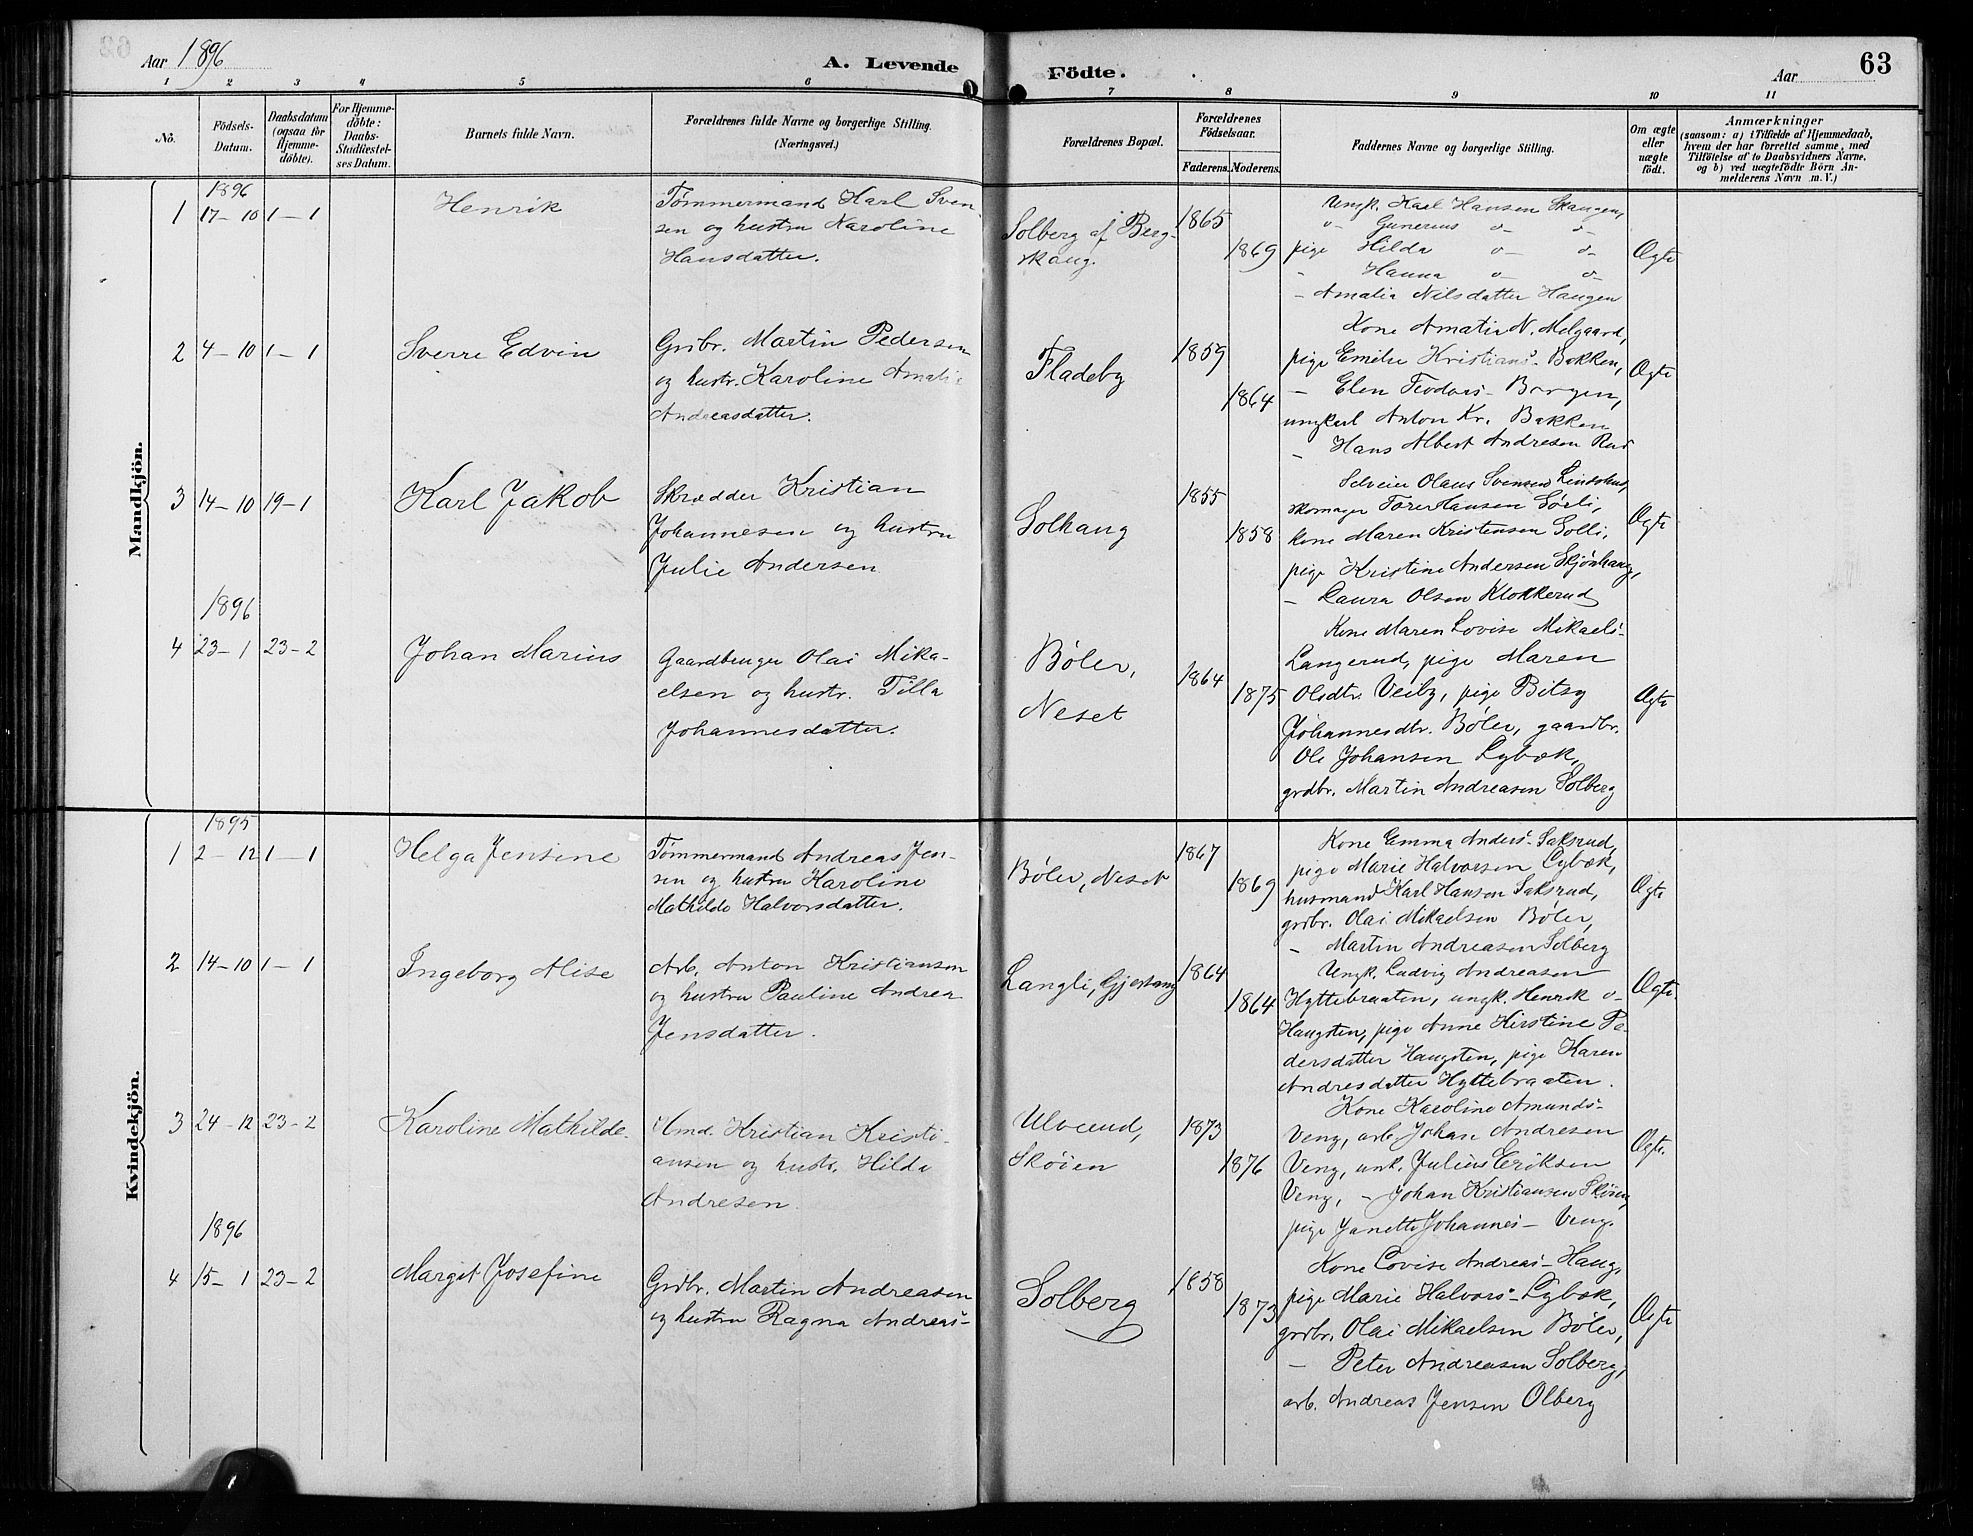 Aar 1896
A. Levende Födte.
Aar
63
1 2 3 4 5 6 7 8 9 10 11
No.
Födsels-Datum.
Daabsdatum (ogsaa for Hjemme-döbte).
For Hjemme-döbte: Daabs-Stadfæstel-ses Datum.
Barnets fulde Navn.
Forældrenes fulde Navne og borgerlige Stilling. (Næringsvei.)
Forældrenes Bopæl.
Forældrenes Födselsaar.
Faderens. Moderens.
Faddernes Navne og borgerlige Stilling.
Om ægte eller uægte födt.
Anmærkninger
(saasom: a) i Tilfælde af Hjemmedaab,
hvem der har forrettet samme, med
Tilföielse af to Daabsvidners Navne,
og b) ved uægtefödte Börn An-
melderens Navn m. V.)
Mandkjön.
1896
1 17–10 1–1
Henrik
Tømmermand Karl Sven-
sen og hustru Karoline
Hansdatter.
Solberg af Berg-
skaug.
1865
1869
Ungk. Karl Hansen Skaugen,
" Gunerius " "
pige Hilda " "
- Hanna " "
- Amalia Nilsdatter Haugen
Ægte
2 4–10 1–1
Sverre Edvin
Grdbr. Martin Pedersen
og hustr. Karoline Amalie
Andreasdatter.
Fladeby
1859
1864
Kone Amatia N. Melgaard,
pige Emilie Kristians- Bakken,
- Elen Teodors- Borgen,
ungkarl Anton Kr. Bakken
- Hans Albert Andresen Rud
Ægte
3 14–10 19–1
Karl Jakob
Skrædder Kristian
Johannesen og hustru
Julie Andersen
Solhaug
1855
1858
Selveier Olaus Svensen Lindshus,
skomager Tore Hansen Sørli,
kone Maren Kristensen Solli,
pige Kristine Andersen Skjønhaug,
- Laura Olsen Klokkerud
Ægte
1896
4 23–1 23–2
Johan Marius
Gaardbruger Olai Mika-
elsen og hustr. Tilla
Johannesdatter.
Bøler,
Neset
1864
1875
Kone Maren Lovise Mikaels-
Langerud, pige Maren
Olsdtr. Veiby, pige Betsy
Johannesdtr. Bøler, gaardbr.
Ole Johansen Lybæk,
grdbr. Martin Andreasen Solberg
Ægte
Kvindekjön.
1895
1 2–12 1–1
Helga Jensine
Tømmermand Andreas Jen-
sen og hustru Karoline
Mathilde Halvorsdatter.
Bøler, Neset
1867
1869
Kone Emma Anders- Saksrud,
pige Marie Halvorsen Lybæk,
husmand Karl Hansen Saksrud,
grdbr. Olai Mikaelsen Bøler,
- Martin Andreasen Solberg
Ægte
2 14–10 1–1
Ingeborg Alise
Arb. Anton Kristiansen
og hustru Pauline Andrea
Jensdatter.
Langli, Gjersang
1864
1864
Ungk. Ludvig Andreasen
Hyttebraaten, ungk. Henrik "
Haugsten, pige Anne Kirstine Pe-
dersdatter Haugsten, pige Karen
Andresdatter Hyttebraaten.
Ægte.
3 24–12 23–2
Karoline Mathilde.
Hmd. Kristian Kristi-
ansen og hustr. Hilda
Andresen.
Ulverud,
Skøien
1873
1876
Kone Karoline Amunds-
Veng, arb. Johan Andresen
Veng, unk. Julius Eriksen
Veng, - Johan Kristiansen Skøien,
pige Janette Johannes- Veng.
Ægte.
1896
4 15–1 23–2
Margit Josefine
Grdbr. Martin Andreasen
og hustru Ragna Andreas-
Solberg
1858
1873
Kone Lovise Andreas- Haug,
pige Marie Halvors- Lybæk,
grdbr. Olai Mikaelsen Bøler,
- Peter Andreasen Solberg,
arb. Andreas Jensen Olberg
Ægte